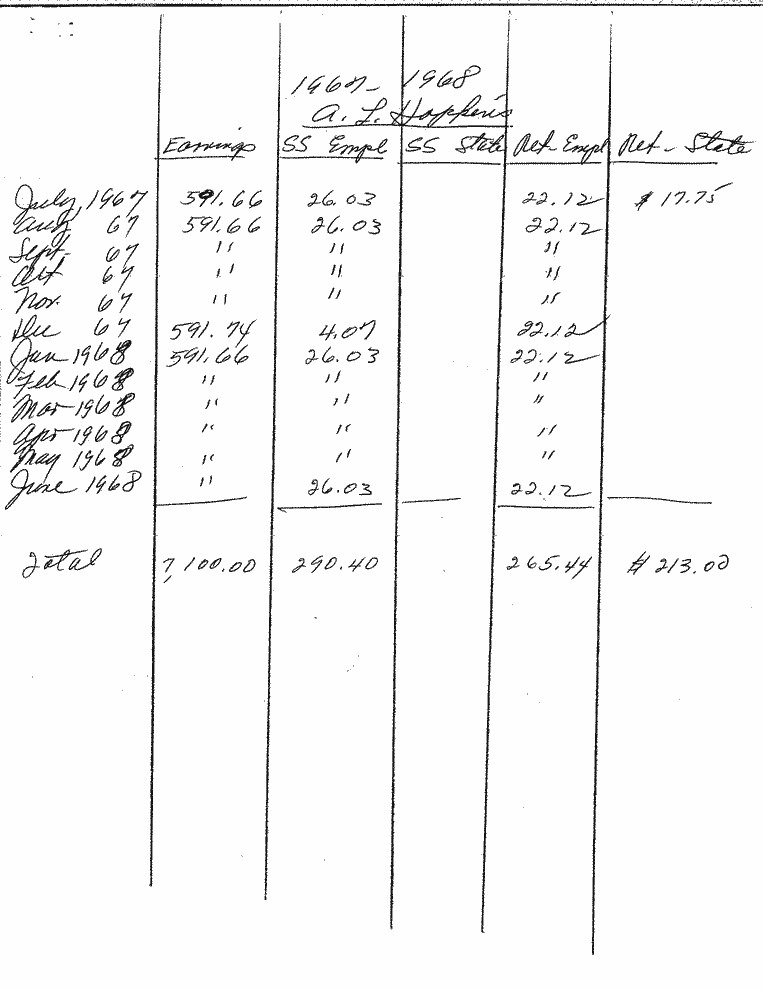 1967- 1968
A. L. Hopkins
Earnings SS Empl SS State Ret-Empl Ret-State
July, 1967 591.66 26.03 22.12 $17.75
Aug 67 591.66 26.03 22.12
Sept. 67 " " "
Oct 67 " " "
Nov. 67 " " "
Dec 67 591.74 4.07 22.12
Jan 1968 591.66 26.03 22.12
Feb 1968 " " "
Mar 1968 " " "
Apr 1968 " " "
May 1968 " " "
June 1968 " 26.03 22.12
Total 7,100.00 290.40 265.44 $213.00